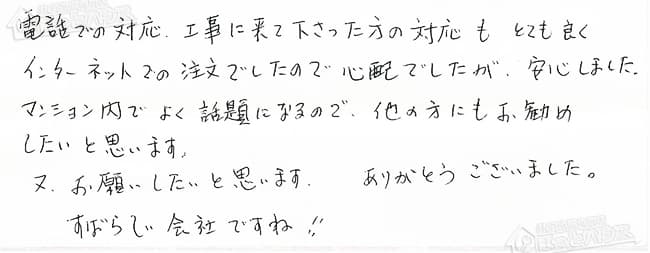 電話での対応、工事に来て下さった方の対応も とても良く
インターネットでの注文でしたので心配でしたが、安心しました。
マンション内でよく話題になるので、他の方にもお勧め
したいと思います。
又、お願いしたいと思います。 ありがとうございました。
すばらしい会社ですね!!